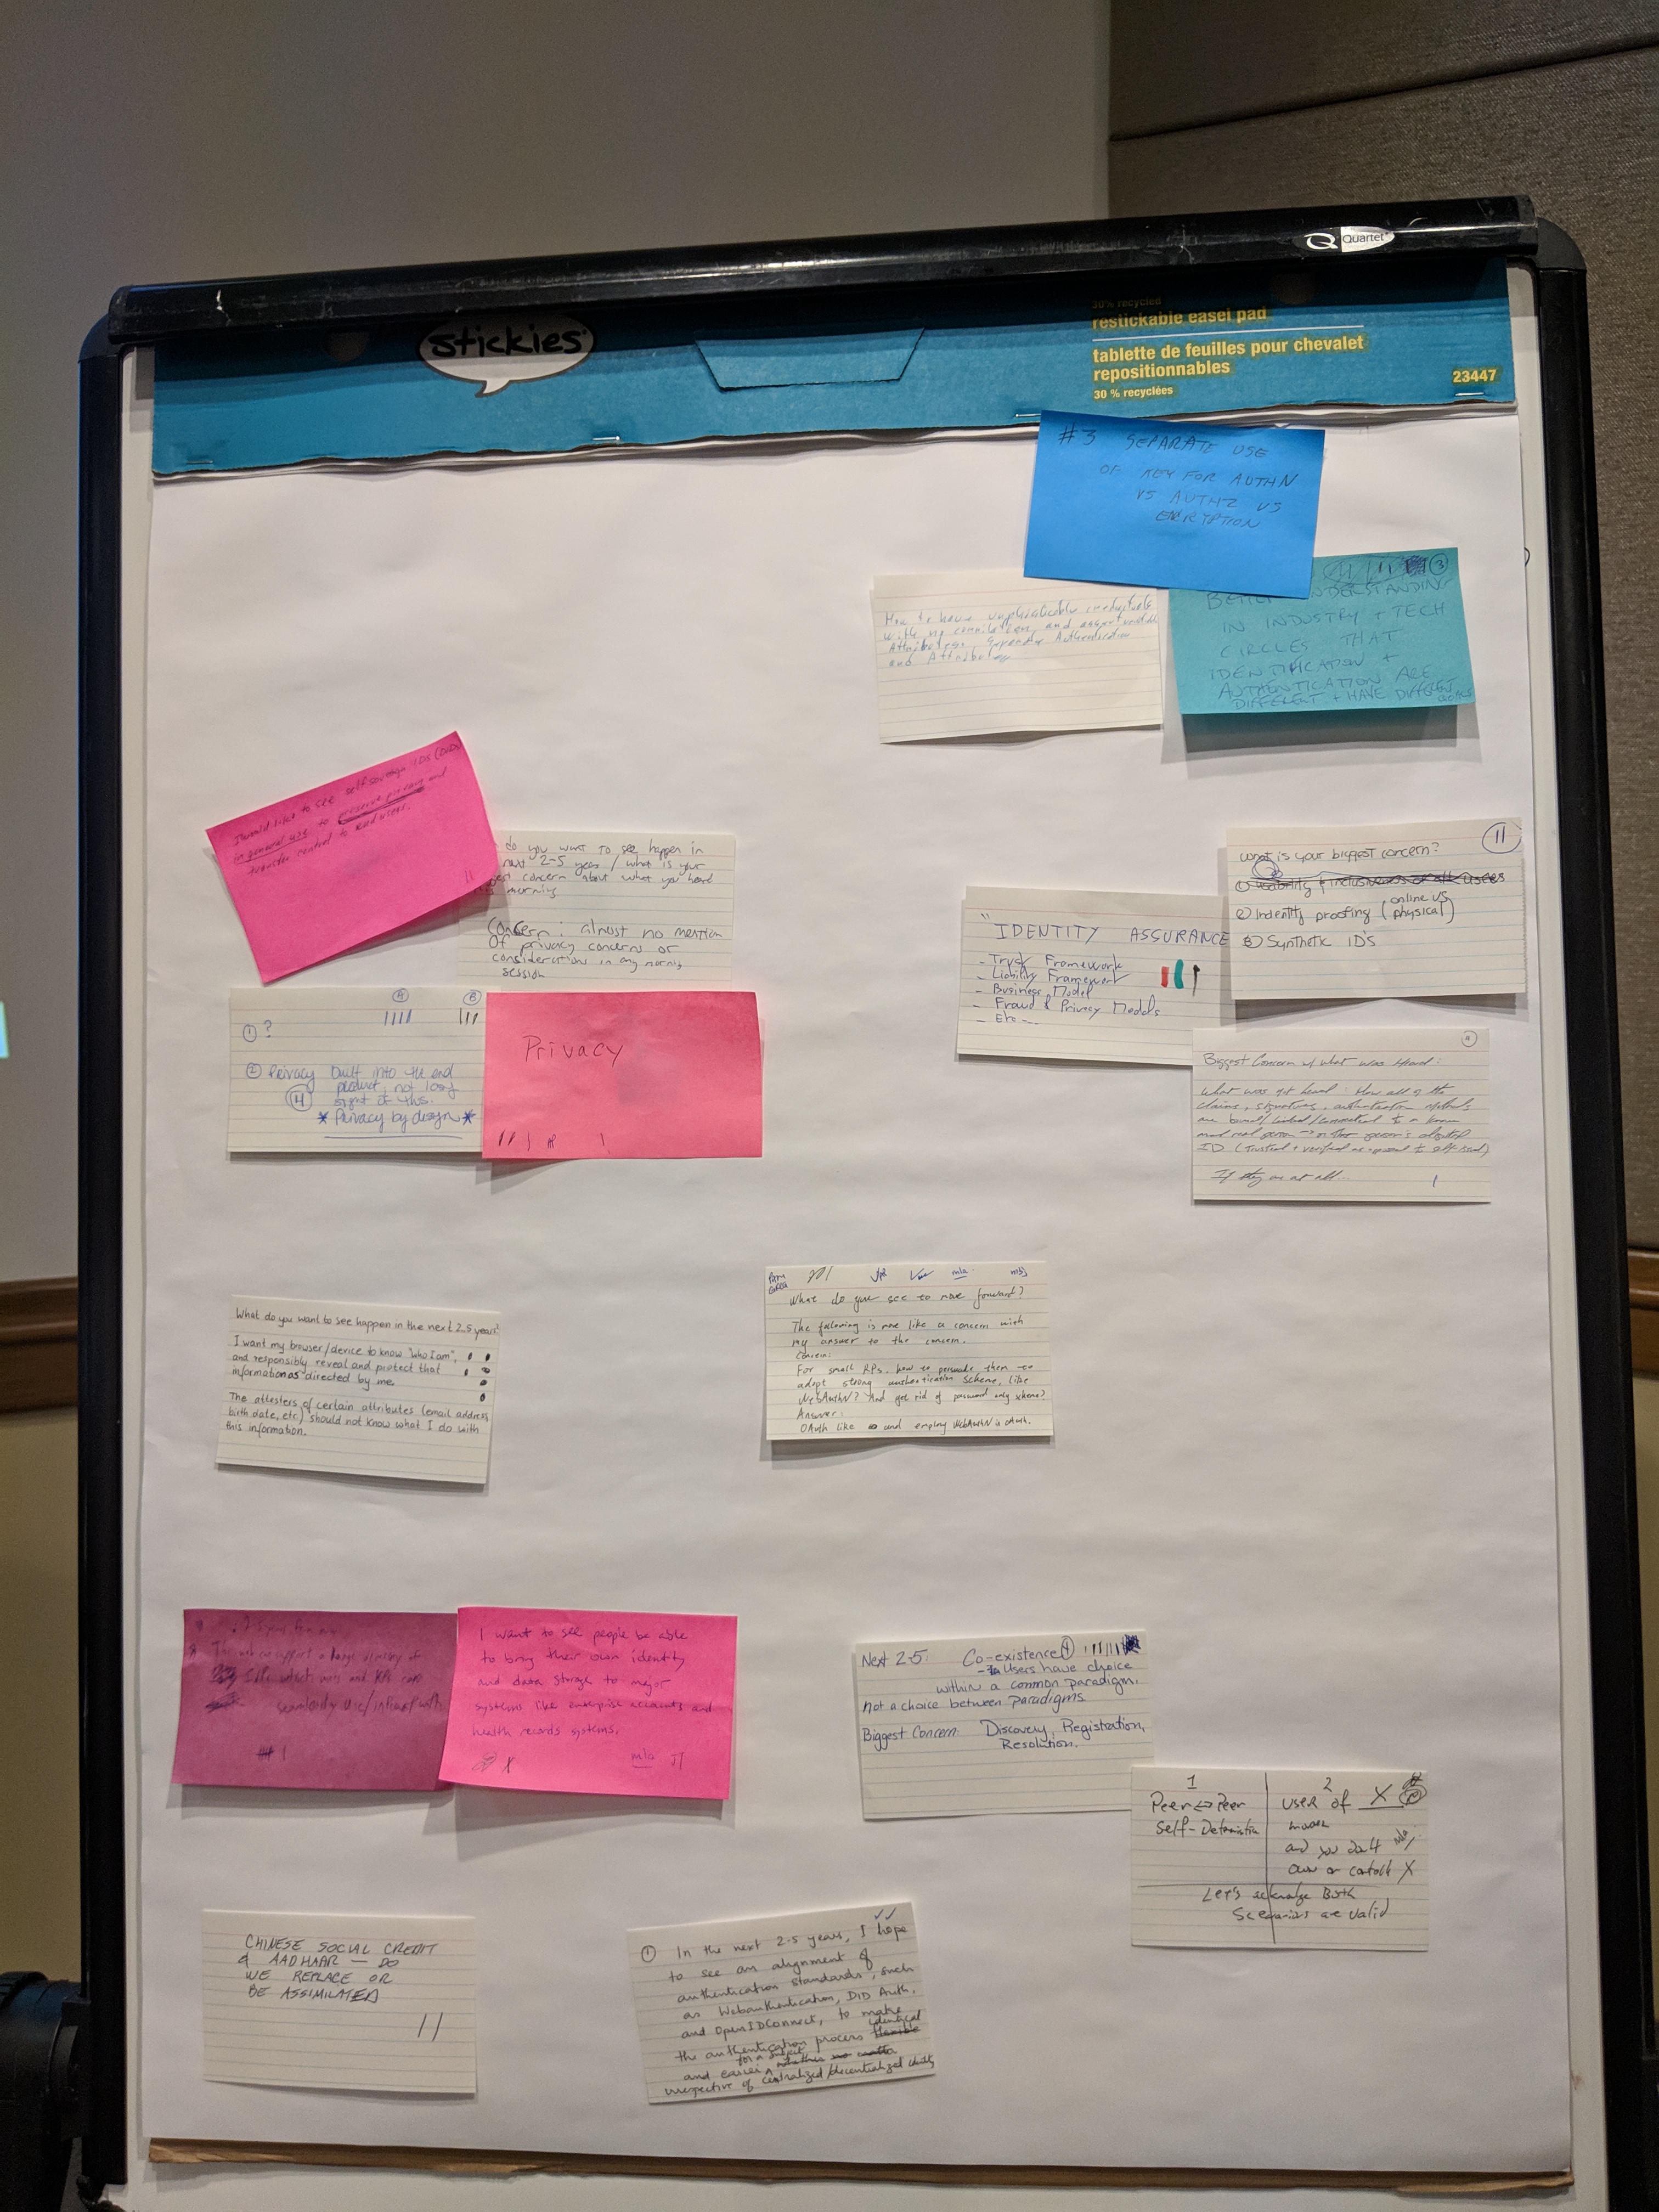 Quartet
stickies
30% recycled
restickable easel pad
tablette de feuilles pour chevalet
repositionnables
30 % recyclées
23447
#3 SEPARATE USE
OF KEY FOR AUTHN
VS AUTHZ VS
ENCRYPTION
How to have credentials
with no and
Attributes. Authentication
and Attributes
3
BETTER UNDERSTANDING
IN INDUSTRY + TECH
CIRCLES THAT
IDENTIFICATION +
AUTHENTICATION ARE
DIFFERENT + HAVE DIFFERENT GOALS
I would like to see self sovereign IDs (DIDs)
in general use to preserve privacy and
transfer control to end users.
do you want to see happen in
next 2-5 years / what is your
concern about what you heard
morning
Concern: almost no mention
of privacy concerns or
considerations in any morning
session
① ?
② Privacy built into the end
product, not losing
sight of this.
* Privacy by design *
Privacy
"IDENTITY ASSURANCE
- Trust Framework
- Liability Framework
- Business Model
- Fraud & Privacy Models
- Etc -
11
What is your biggest concern?
① Usability & inclusiveness of all users
② Indentity proofing (online vs physical)
③ Synthetic ID's
Biggest Concern w/ what was heard:
What was not heard: How all of the
claims, signatures, authentication
are bound / / connected to a known
real person → or that person's digital
ID (Trusted + verified as opposed to self-issued)
If they are at all...
What do you want to see happen in the next 2-5 years?
I want my browser/device to know "who I am",
and responsibly reveal and protect that
information as directed by me.
The attesters of certain attributes (email address,
birth date, etc) should not know what I do with
this information.
What do you see to move forward?
The following is more like a concern with
my answer to the concern.
Concern:
For small RPs, how to persuade them to
adopt strong authentication scheme, like
WebAuthN? And get rid of password only scheme?
Answer:
OAuth like and employ WebAuthN in OAuth.
2-5 years from now
The web to support a large diversity of
IDPs which users and RPs can
seamlessly use/interact with
I want to see people be able
to bring their own identity
and data storage to major
systems like enterprise accounts and
health records systems.
mla JT
Next 2-5: Co-existence
- Users have choice
within a common paradigm.
Not a choice between paradigms.
Biggest Concern: Discovery, Registration,
Resolution.
1
Peer ↔ Peer
Self-
2
user of X
and you don't
own or control X
Let's acknowledge Both
Scenarios are valid
CHINESE SOCIAL CREDIT
& AADHAAR — DO
WE REPLACE OR
BE ASSIMILATED
① In the next 2-5 years, I hope
to see an alignment of
authentication standards, such
as Webauthentication, DID Auth.
and OpenIDConnect, to make
the authentication process identical
and easier for a subject
irrespective of centralized/decentralized identity